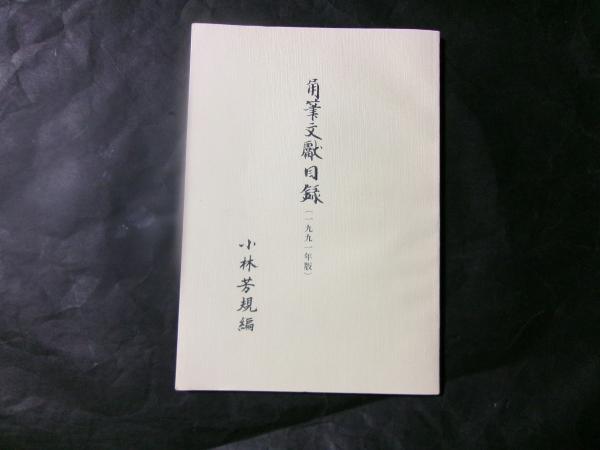 角筆文獻目録(一九九一年版)
小林芳規編